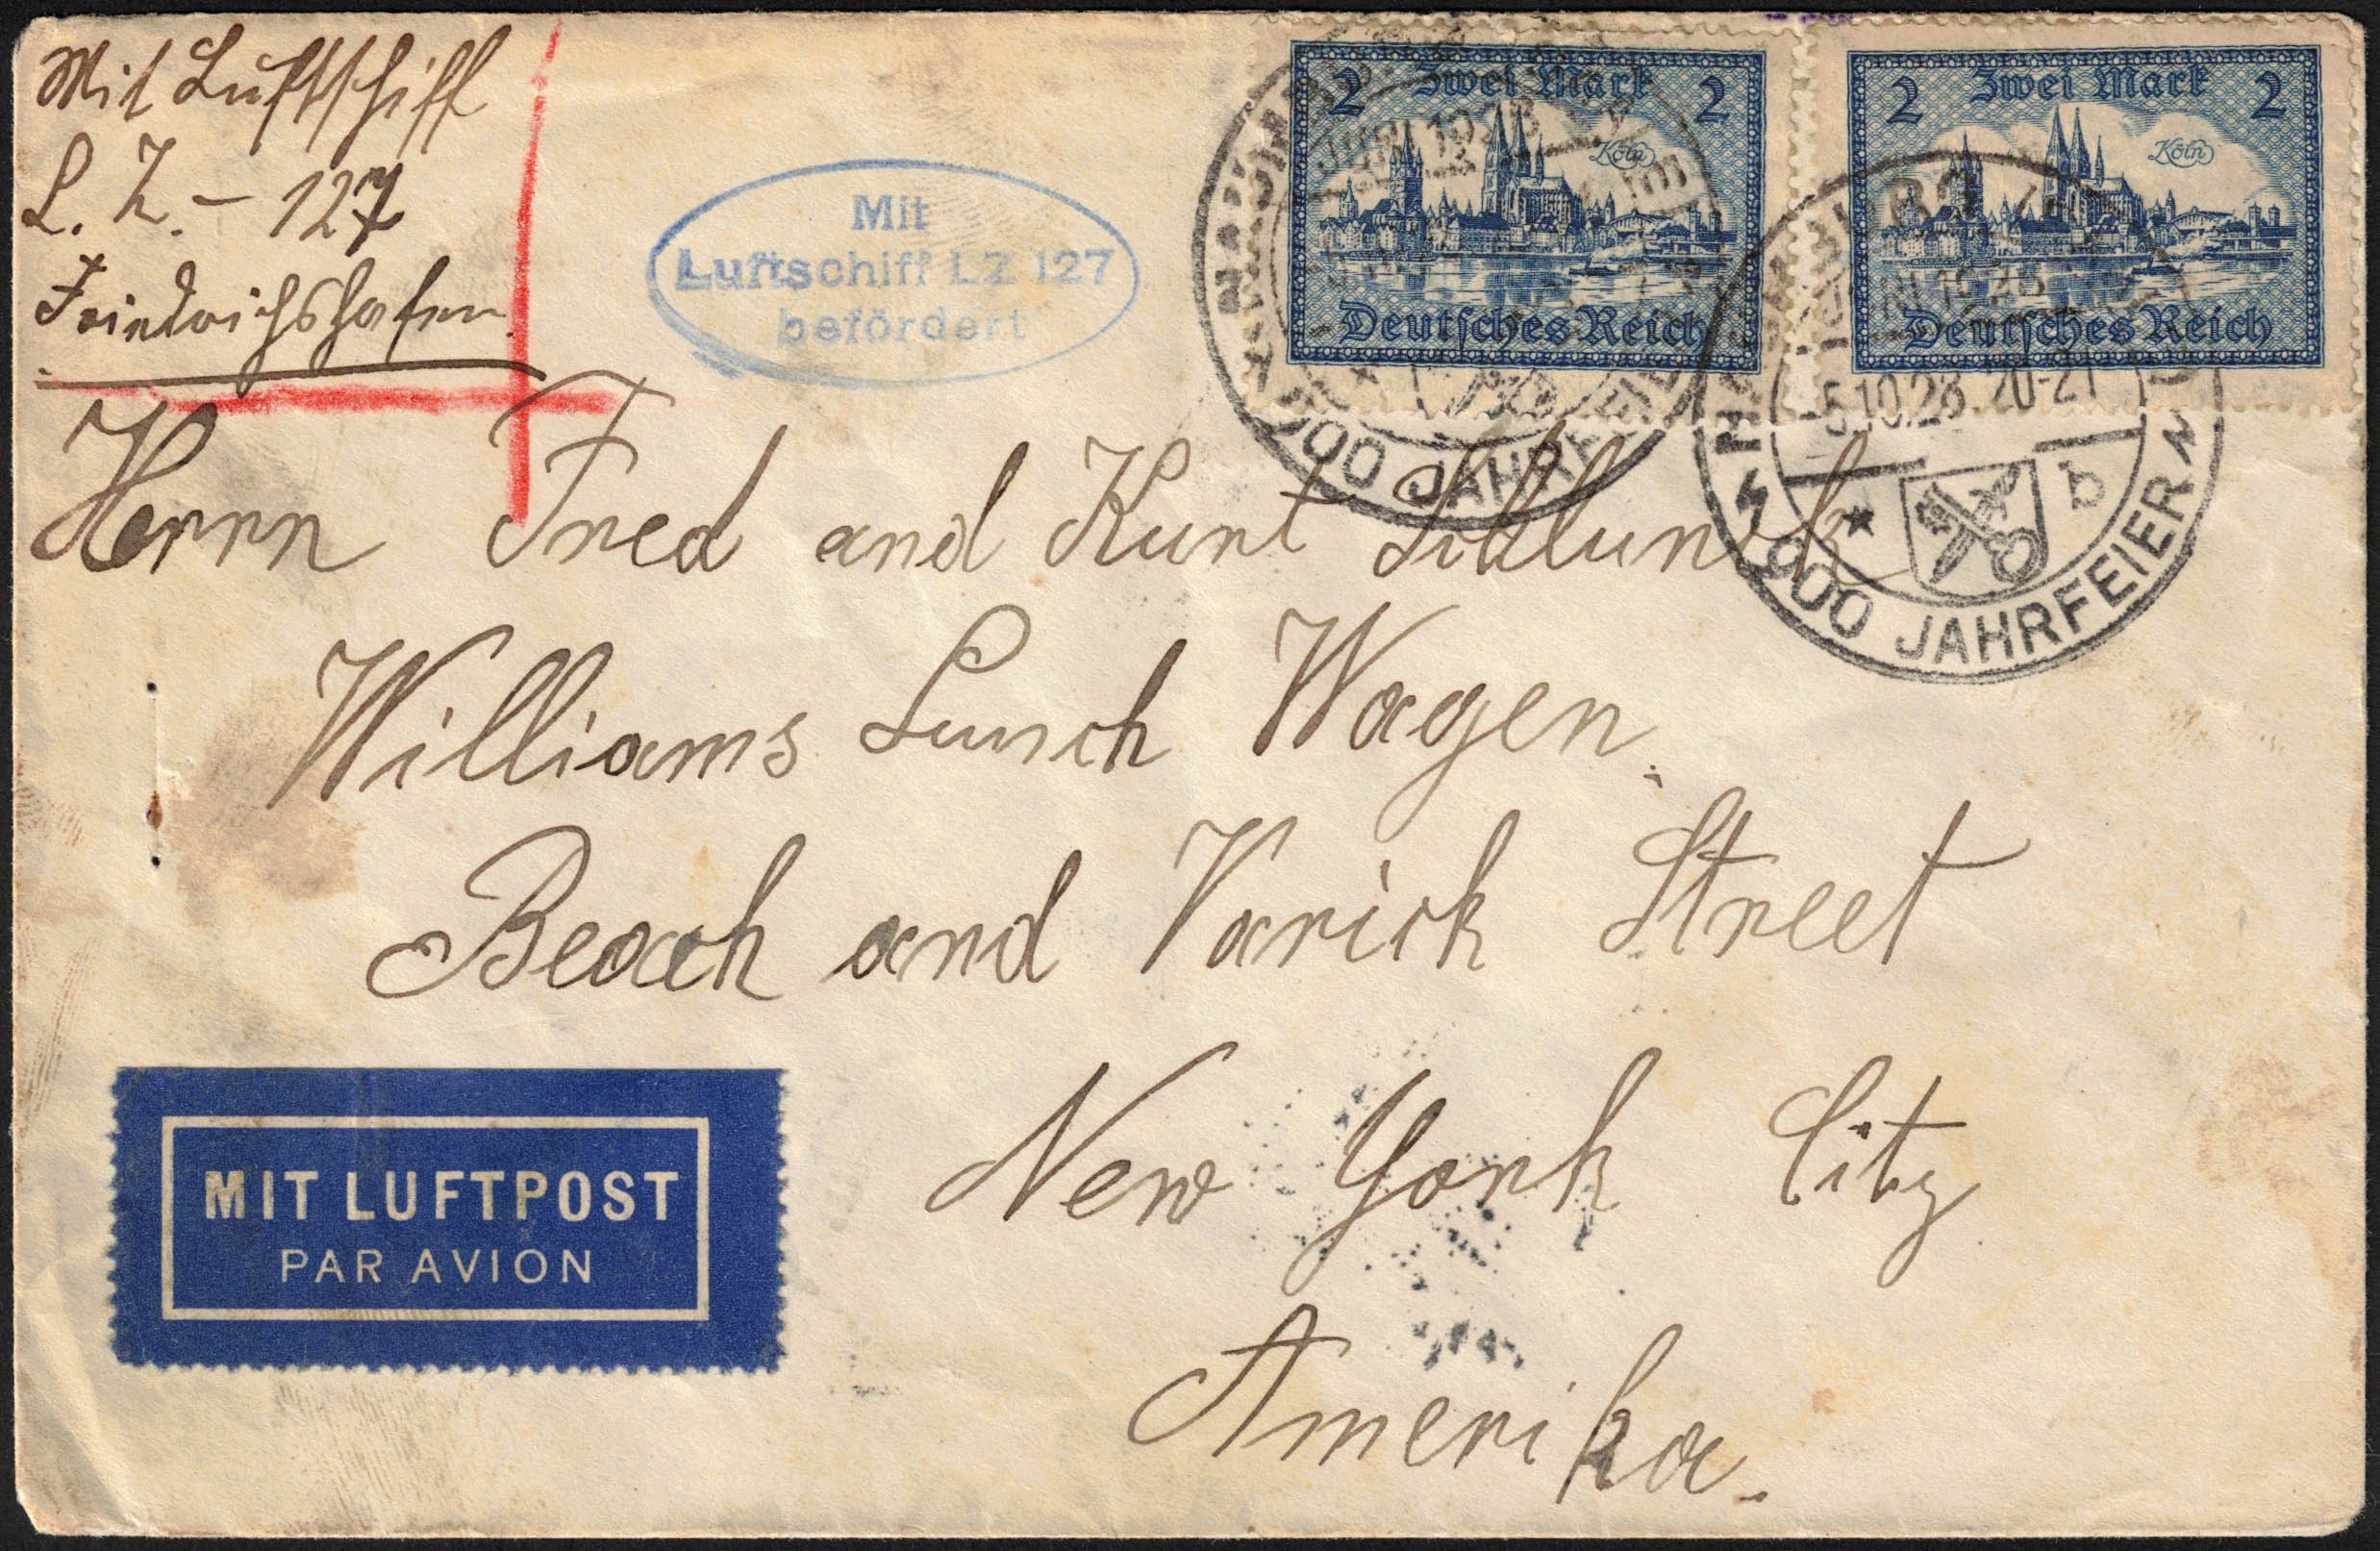 Mit Luftschiff
L. Z. - 127
Friedrichshafen.
Mit
Luftschiff LZ 127
befördert
2 Zwei Mark 2
Köln
Deutsches Reich
2 Zwei Mark 2
Köln
Deutsches Reich
JAHRFEIER
-5.10.28. 20-21
* b
900 JAHRFEIER
Herrn Fred and Kurt
Williams Lunch Wagen.
Beach and Varick Street
New York City
Amerika.
MIT LUFTPOST
PAR AVION